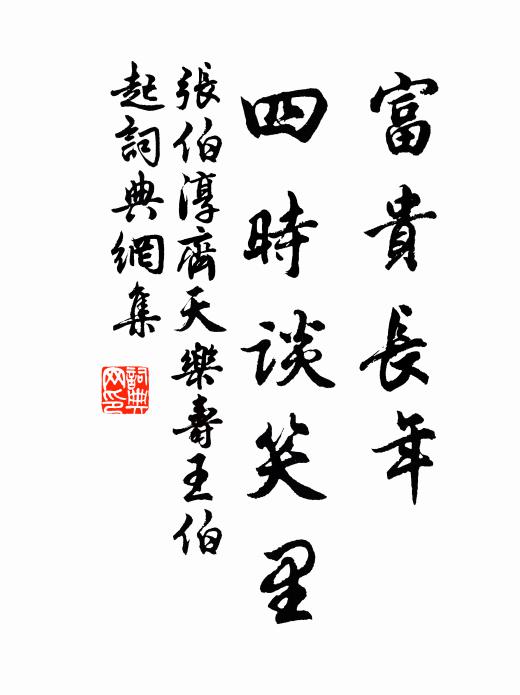 富貴長年
四時談笑里
張伯淳齊天樂壽王伯
起詞典網集
詞典
网印